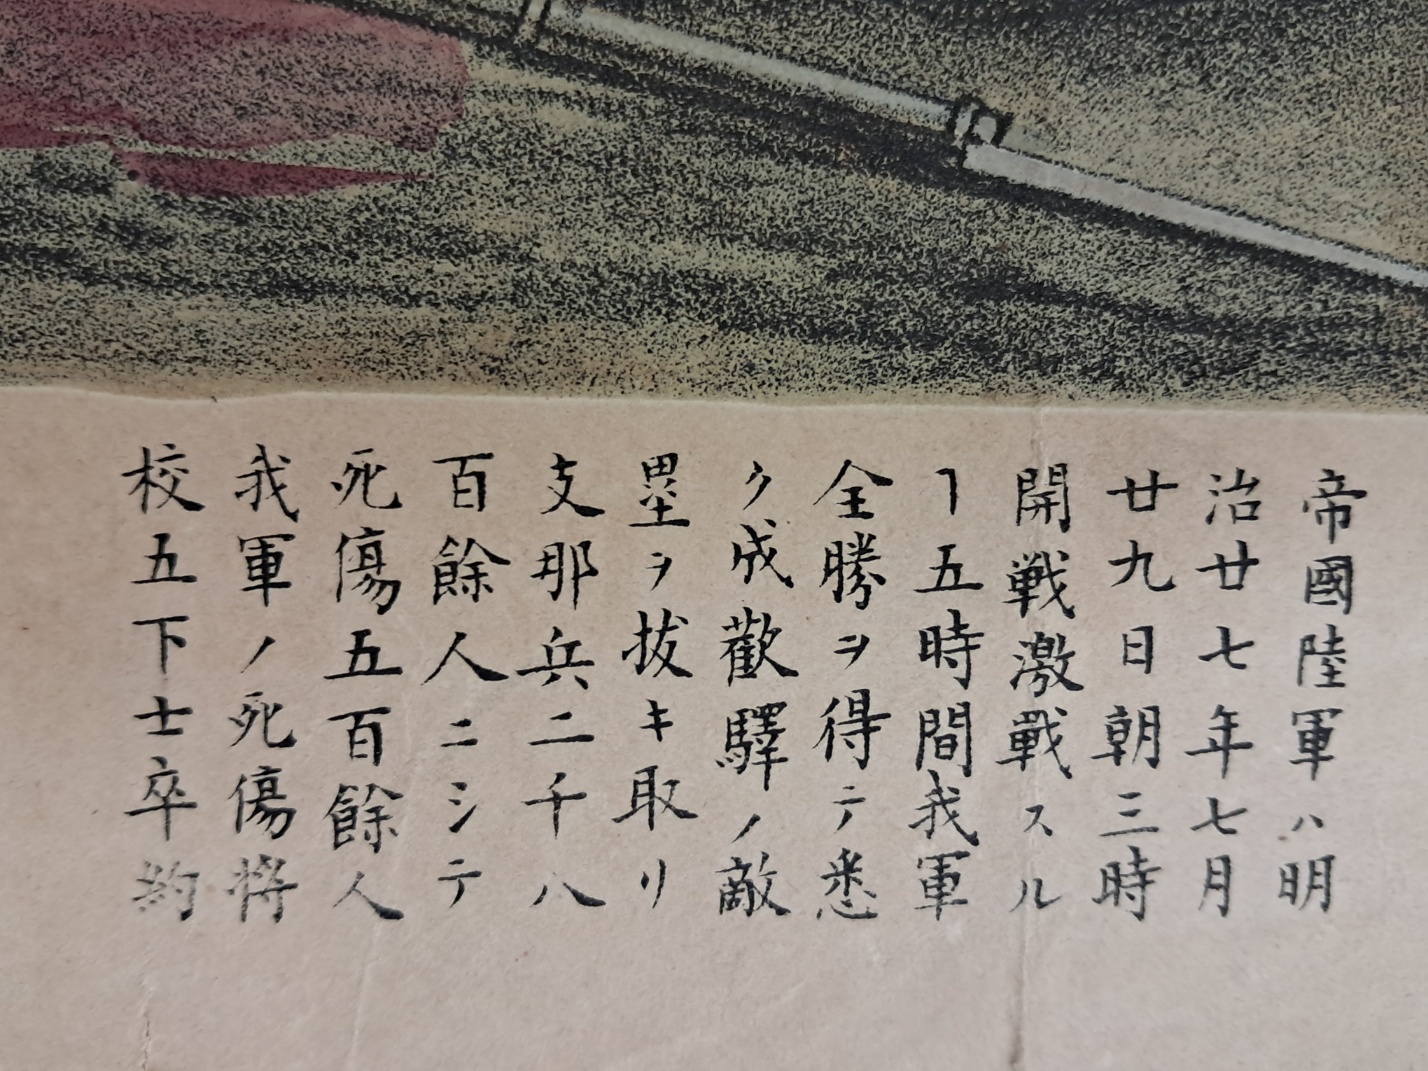 帝國陸軍ハ明
治廿七年七月
廿九日朝三時
開戰激戰スル
ヿ五時間我軍
全勝ヲ得テ悉
ク成歡驛ノ敵
塁ヲ拔キ取リ
支那兵二千八
百餘人ニシテ
死傷五百餘人
我軍ノ死傷将
校五下士卒約